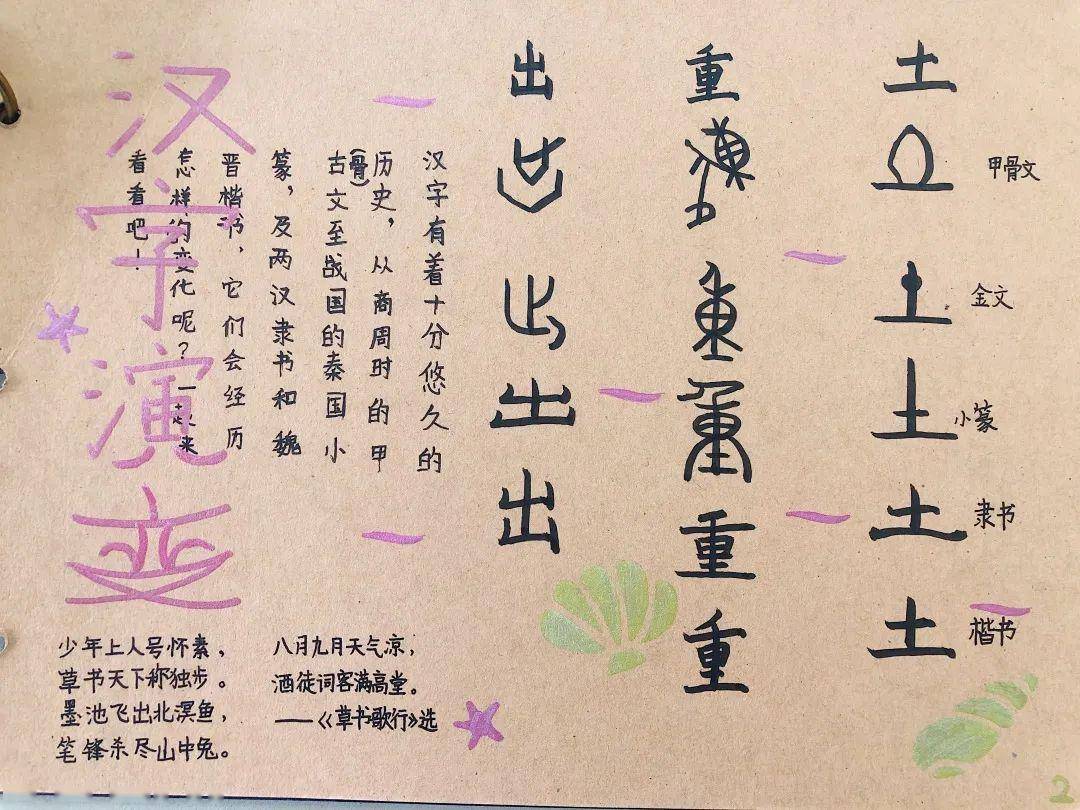 汉字演变
汉字有着十分悠久的
历史，从商周时的甲
(骨)
古文至战国的秦国小
篆，及两汉隶书和魏
晋楷书，它们会经历
怎样的变化呢？一起来
看看吧！
出
出
出
重
重
重
土
甲骨文
金文
土
小篆
土
隶书
土
楷书
少年上人号怀素，
草书天下称独步。
墨池飞出北溟鱼，
笔锋杀尽山中兔。
八月九月天气凉，
酒徒词客满高堂。
——《草书歌行》选
2